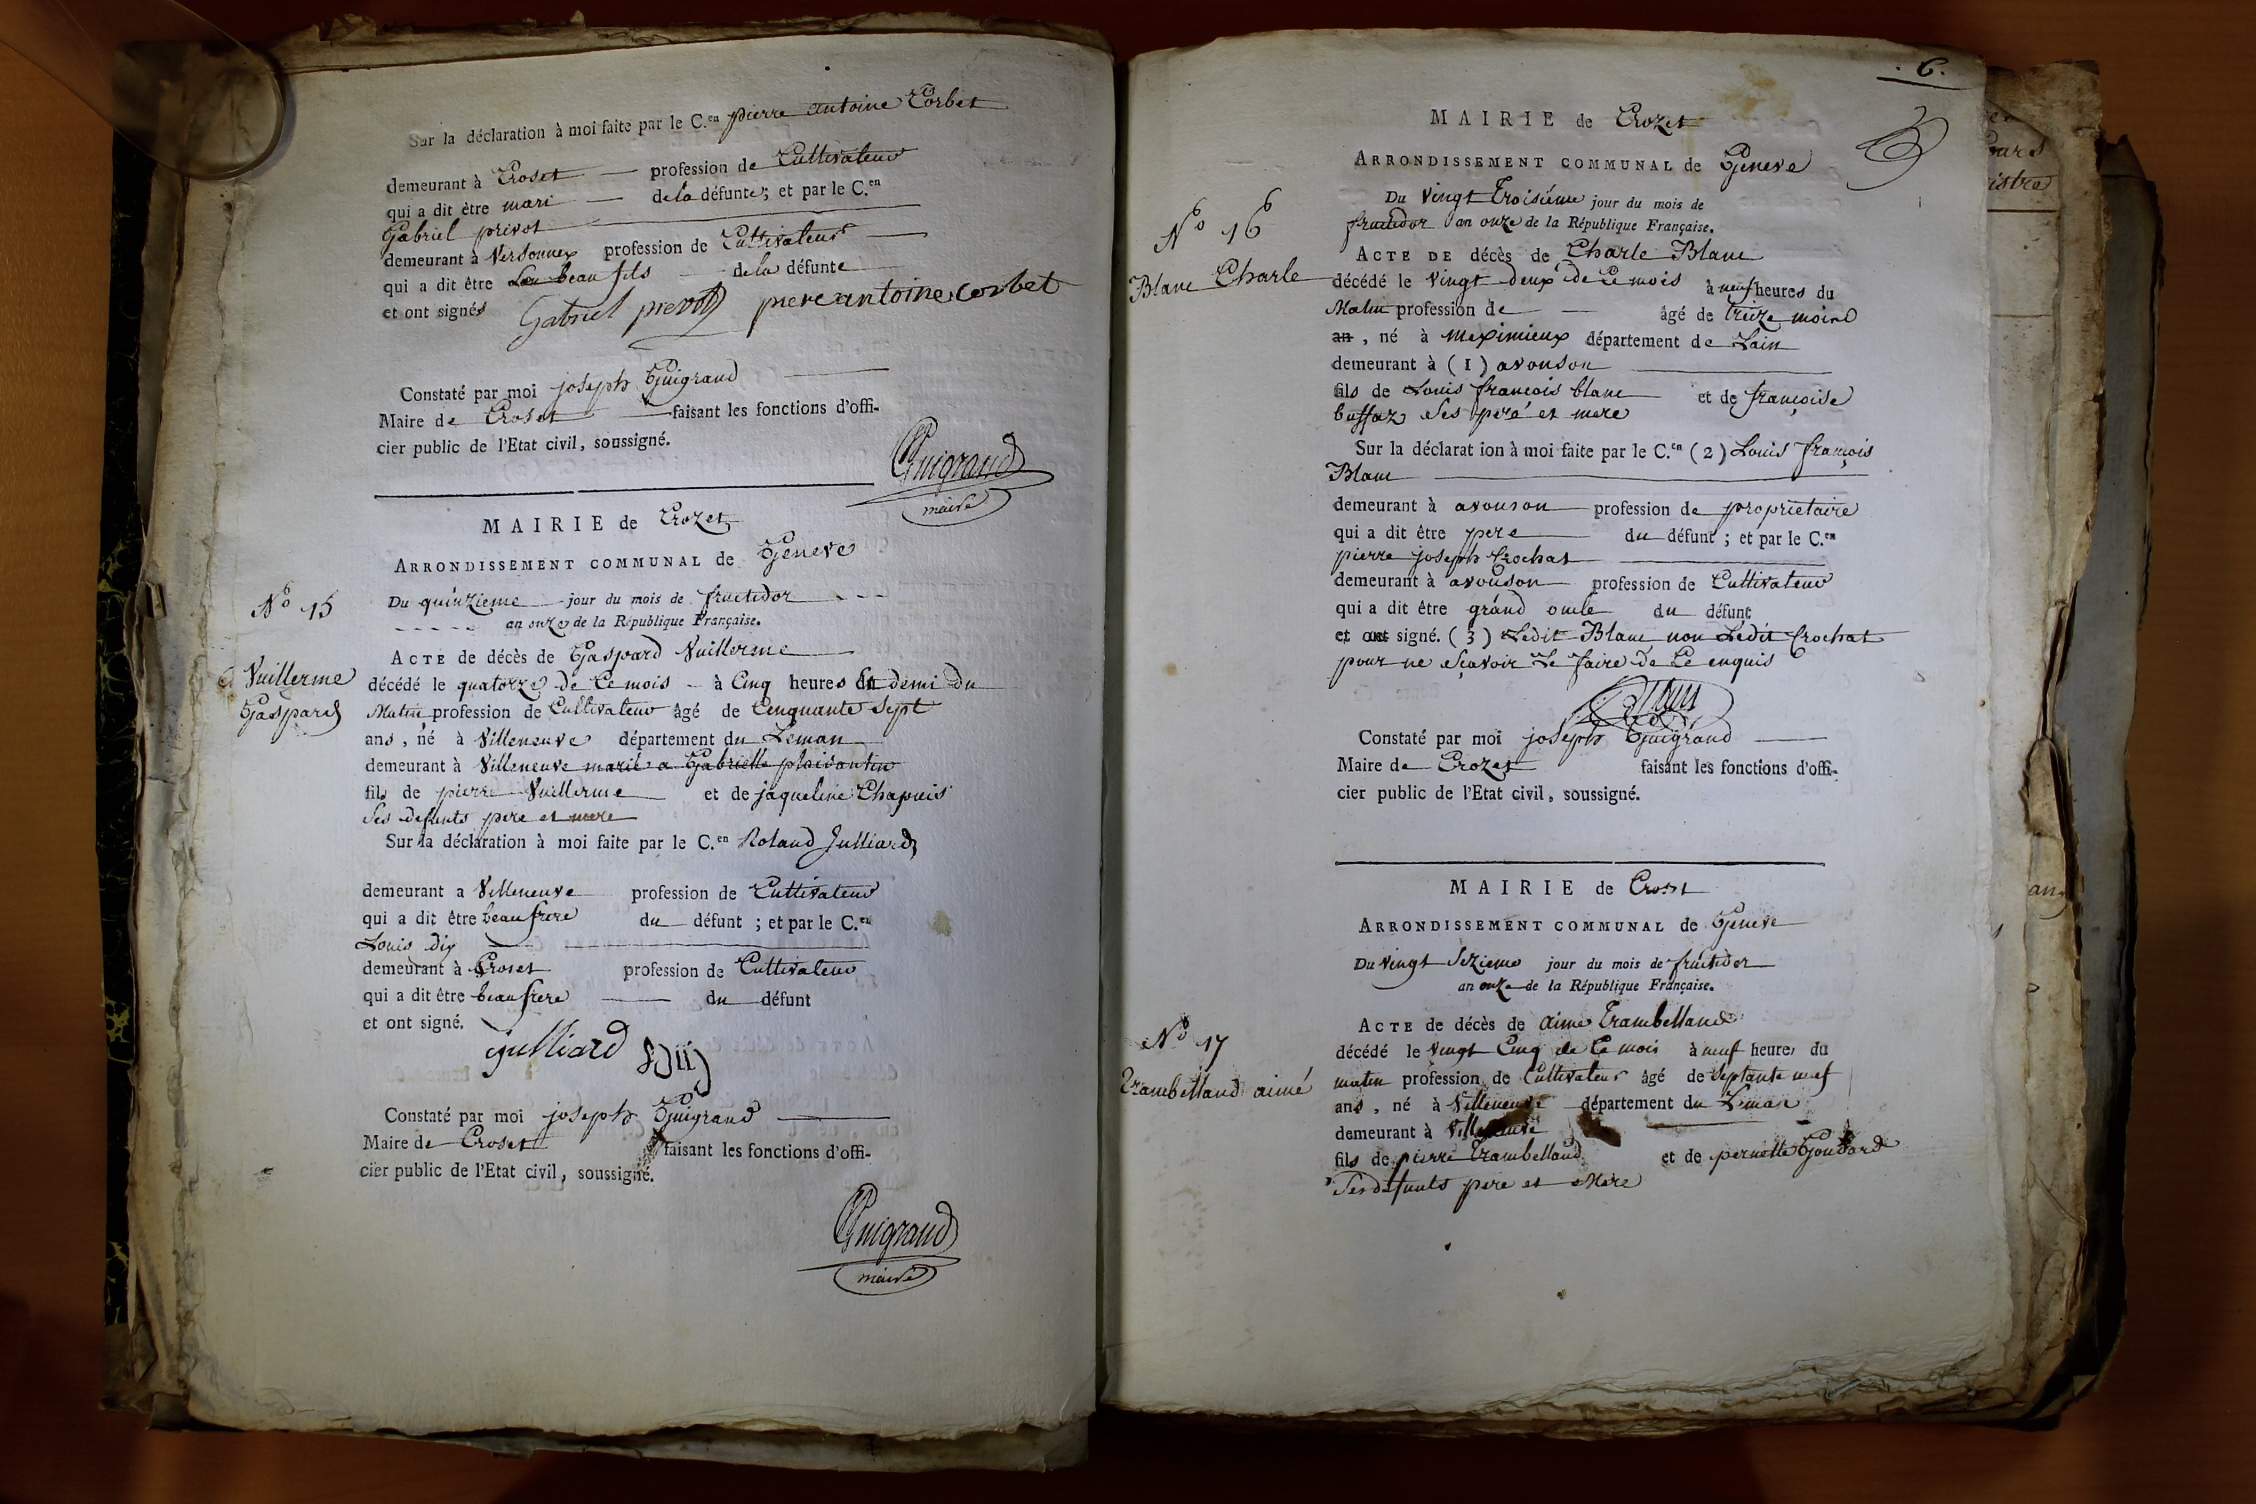 Sur la déclaration à moi faite par le C.en pierre antoine Corbet
demeurant à Croset profession de Cultivateur
qui a dit être mari de la défunte; et par le C.en
Gabriel privot
demeurant à Versonnex profession de Cultivateur
qui a dit être beau fils de la défunte
et ont signés Gabriel prevot pierre antoine corbet
Constaté par moi joseph Guigrand
Maire de Croset faisant les fonctions d'offi-
cier public de l'Etat civil, soussigné.
Guigrand
maire
MAIRIE de Crozet
ARRONDISSEMENT COMMUNAL de Geneve
No 15
Du quinzieme jour du mois de fructidor
an onze de la République Française.
Vuillerme
Gaspard
ACTE de décès de Gaspard Vuillerme
décédé le quatorze de Ce mois à Cinq heures et demi du
Matin profession de Cultivateur âgé de Cinquante Sept
ans, né à Villeneuve département du Leman
demeurant à Villeneuve marié a Gabrielle
fils de pierre Vuillerme et de jaqueline Chapuis
Ses defunts pere et mere
Sur la déclaration à moi faite par le C.en Roland Julliard
demeurant a Villeneuve profession de Cultivateur
qui a dit être beau frere du défunt; et par le C.en
Louis dij
demeurant à Croset profession de Cultivateur
qui a dit être beau frere du défunt
et ont signé.
julliard
Constaté par moi joseph Guigrand
Maire de Croset faisant les fonctions d'offi-
cier public de l'Etat civil, soussigné.
Guigrand
maire
6.
MAIRIE de Crozet
ARRONDISSEMENT COMMUNAL de Geneve
No 16
Du vingt Troisiéme jour du mois de
fructidor an onze de la République Française.
Blanc Charle
ACTE DE décès de Charle Blanc
décédé le vingt deux de Ce mois à neuf heures du
Matin profession de âgé de treize mois
an, né à meximieux département de Lain
demeurant à (1) avouson
fils de Louis françois blanc et de françoise
buffaz Ses peré et mere
Sur la déclarat ion à moi faite par le C.en (2) Louis françois
Blanc
demeurant à avouson profession de proprietaire
qui a dit être pere du défunt; et par le C.en
pierre joseph Crochat
demeurant à avouson profession de Cultivateur
qui a dit être grand oncle du défunt
et ont signé. (3) Ledit Blanc non Ledit Crochat
pour ne sçavoir Le faire de Ce enquis
Blanc
Constaté par moi joseph Guigrand
Maire de Crozet faisant les fonctions d'offi-
cier public de l'Etat civil, soussigné.
MAIRIE de Croset
ARRONDISSEMENT COMMUNAL de Geneve
Du vingt Sezieme jour du mois de fructidor
an onze de la République Française.
No 17
Trambelland aimé
ACTE de décès de aimé Trambelland
décédé le vingt Cinq de Ce mois à neuf heures du
matin profession de Cultivateur âgé de Septante neuf
ans, né à Villeneuve département du Leman
demeurant à Villeneuve
fils de pierre Trambelland et de pernette Goudard
Ses defunts pere et Mere